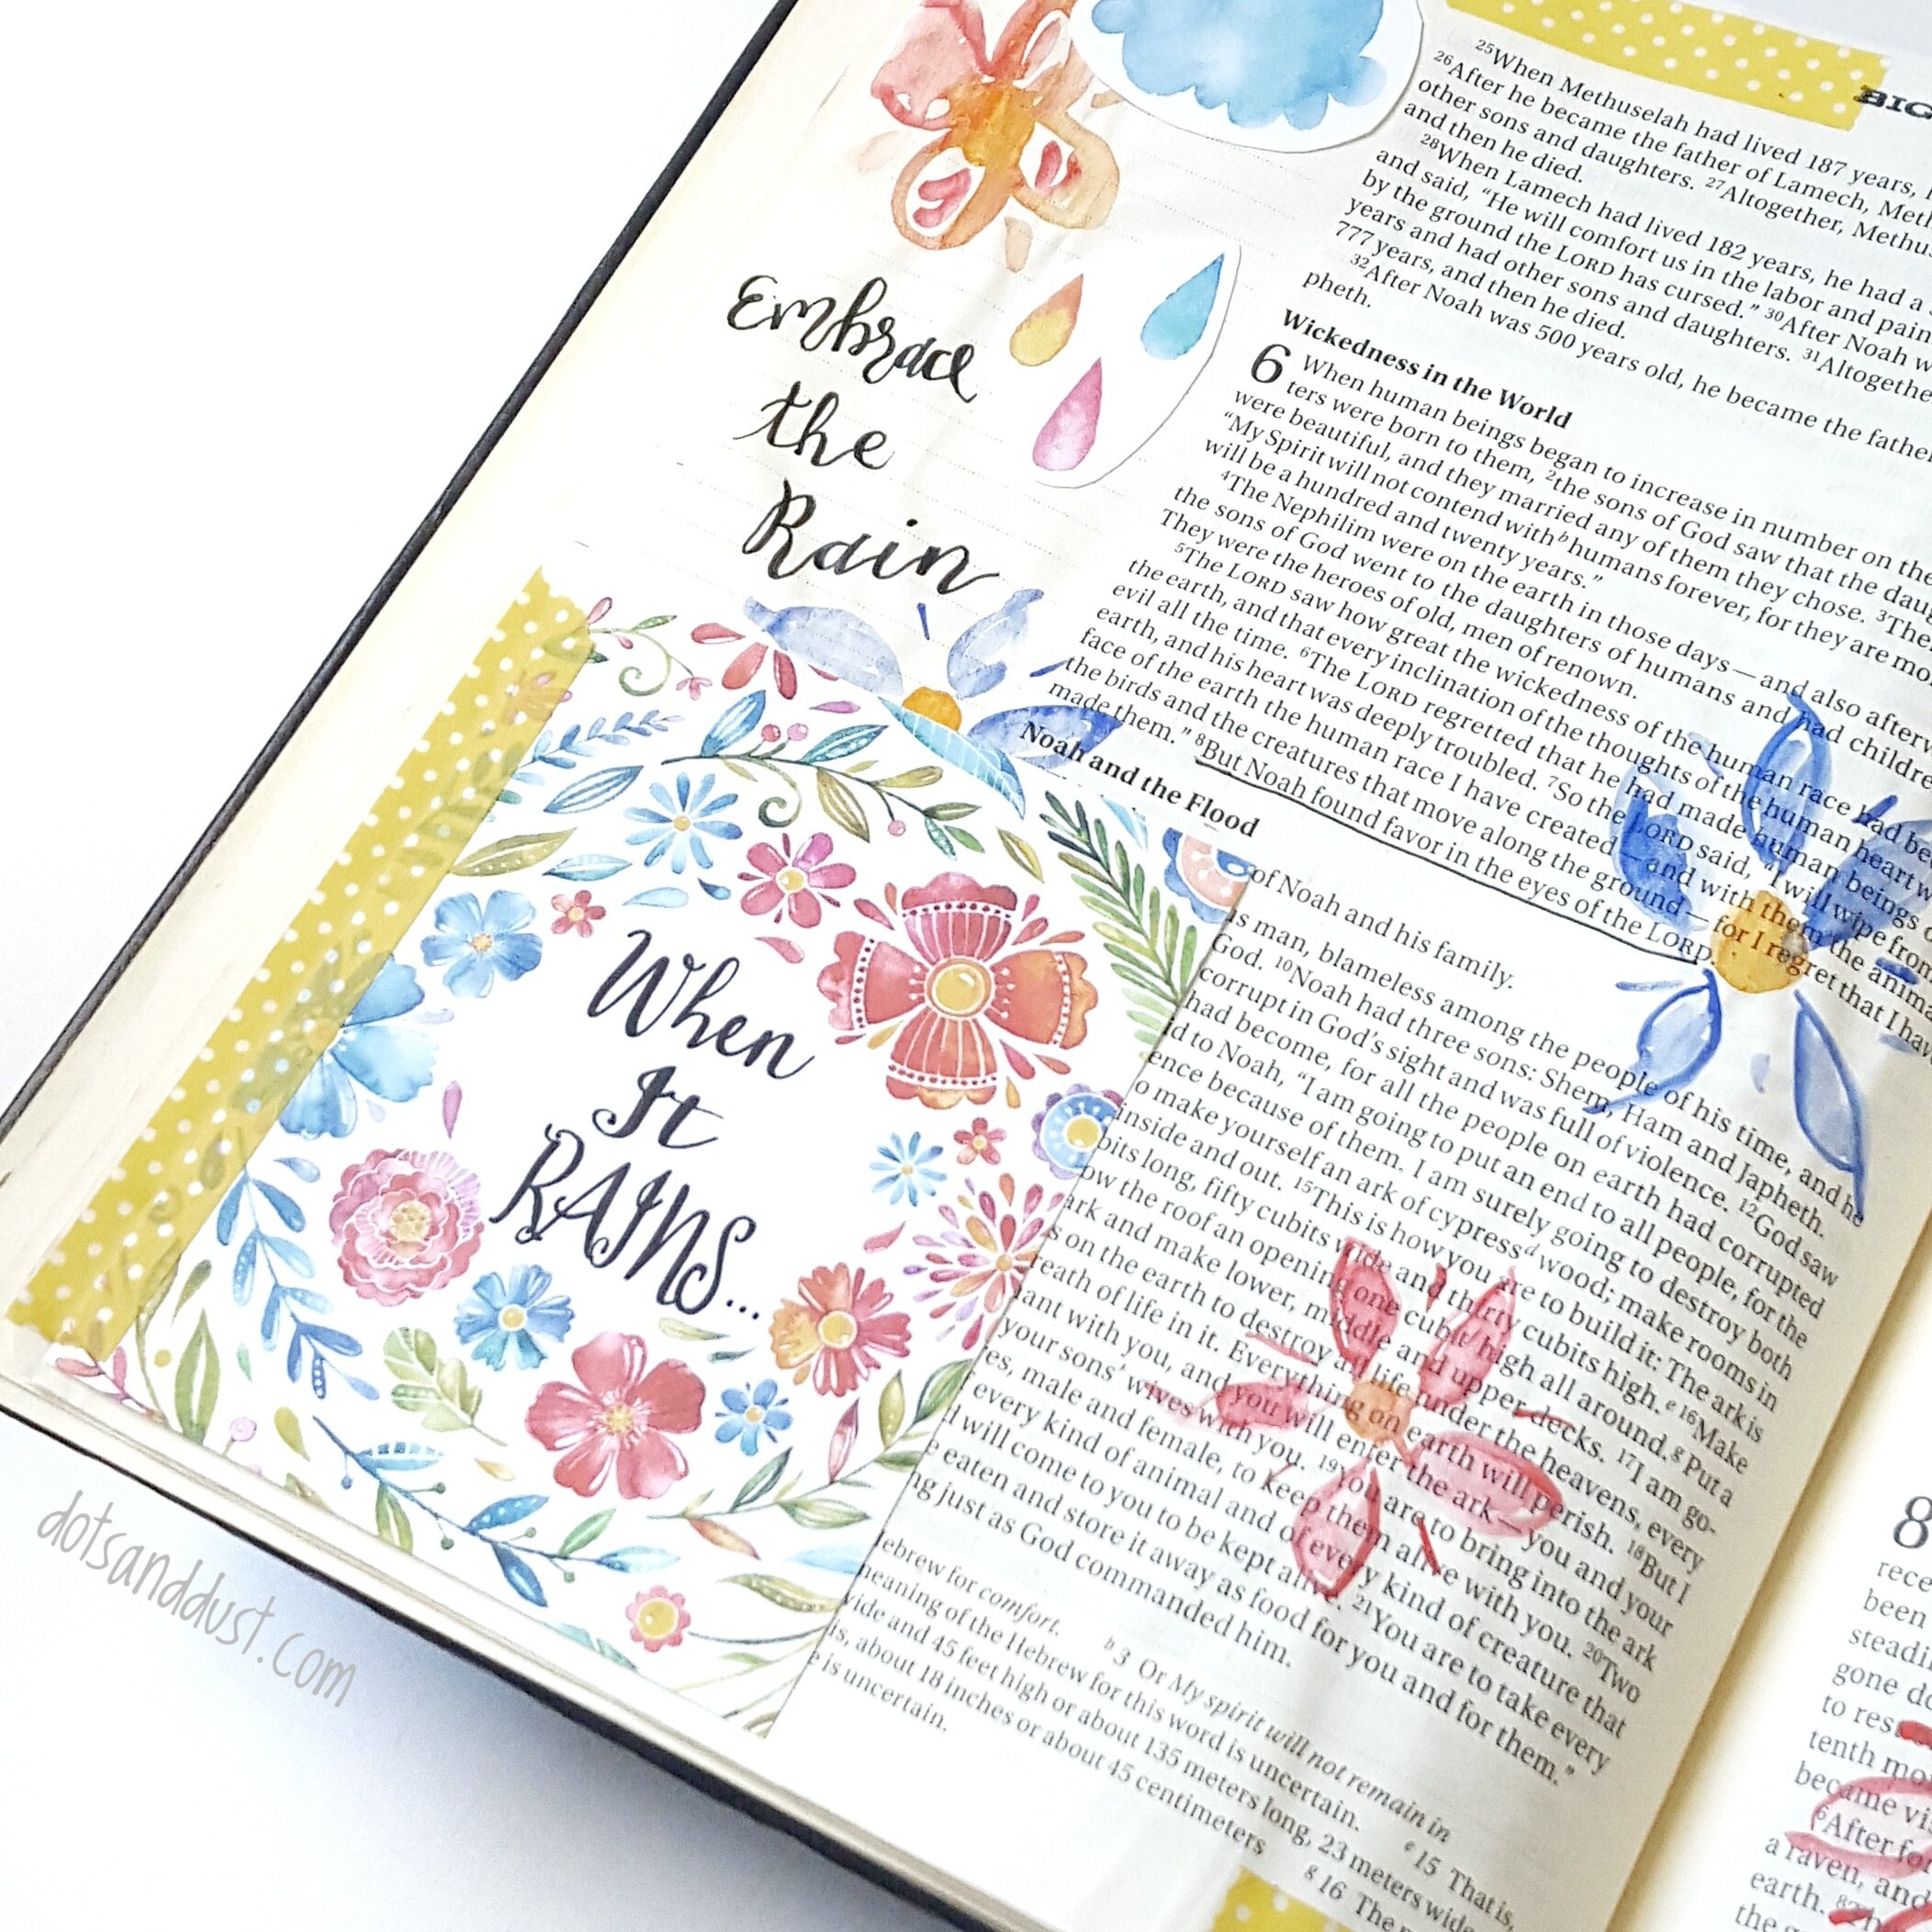 BIG
25When Methuselah had lived 187 years,
26After he became the father of Lamech, Meth
other sons and daughters. 27Altogether, Methus
and then he died.
28When Lamech had lived 182 years, he had a
and said, "He will comfort us in the labor and pain
by the ground the LORD has cursed." 30After Noah w
years and had other sons and daughters. 31Altogethe
777 years, and then he died.
32After Noah was 500 years old, he became the father
pheth.
Embrace
the
Rain
Wickedness in the World
6 When human beings began to increase in number on the
ters were born to them, 2the sons of God saw that the dau
were beautiful, and they married any of them they chose. 3The
"My Spirit will not contend with b humans forever, for they are mo
will be a hundred and twenty years."
4The Nephilim were on the earth in those days—and also afterw
the sons of God went to the daughters of humans and had childre
They were the heroes of old, men of renown.
5The LORD saw how great the wickedness of the human race had be
the earth, and that every inclination of the thoughts of the human heart w
evil all the time. 6The LORD regretted that he had made human beings
earth, and his heart was deeply troubled. 7So the LORD said, "I will wipe from
face of the earth the human race I have created—and with them the anima
the birds and the creatures that move along the ground—for I regret that I hav
made them." 8But Noah found favor in the eyes of the LORD.
Noah and the Flood
of Noah and his family.
s man, blameless among the people of his time, and he
God. 10Noah had three sons: Shem, Ham and Japheth.
corrupt in God's sight and was full of violence. 12God saw
had become, for all the people on earth had corrupted
d to Noah, "I am going to put an end to all people, for the
ence because of them. I am surely going to destroy both
o make yourself an ark of cypress d wood; make rooms in
inside and out. 15This is how you are to build it: The ark is
bits long, fifty cubits wide and thirty cubits high. e 16Make
ow the roof an opening one cubit high all around. g Put a
ark and make lower, middle and upper decks. 17I am go-
s on the earth to destroy all life under the heavens, every
reath of life in it. Everything on earth will perish. 18But I
ant with you, and you will enter the ark—you and your
your sons' wives with you. 19You are to bring into the ark
es, male and female, to keep them alive with you. 20Two
every kind of animal and of every kind of creature that
d will come to you to be kept alive. 21You are to take every
e eaten and store it away as food for you and for them."
ng just as God commanded him.
When
It
RAINS...
ebrew for comfort. b 3 Or My spirit will not remain in
meaning of the Hebrew for this word is uncertain. e 15 That is,
vide and 45 feet high or about 135 meters long, 23 meters wide
is, about 18 inches or about 45 centimeters g 16 The
e is uncertain.
dotsanddust.com
8
rece
been
steadi
gone do
to res
tenth mo
became vis
6After for
a raven, and
earth.